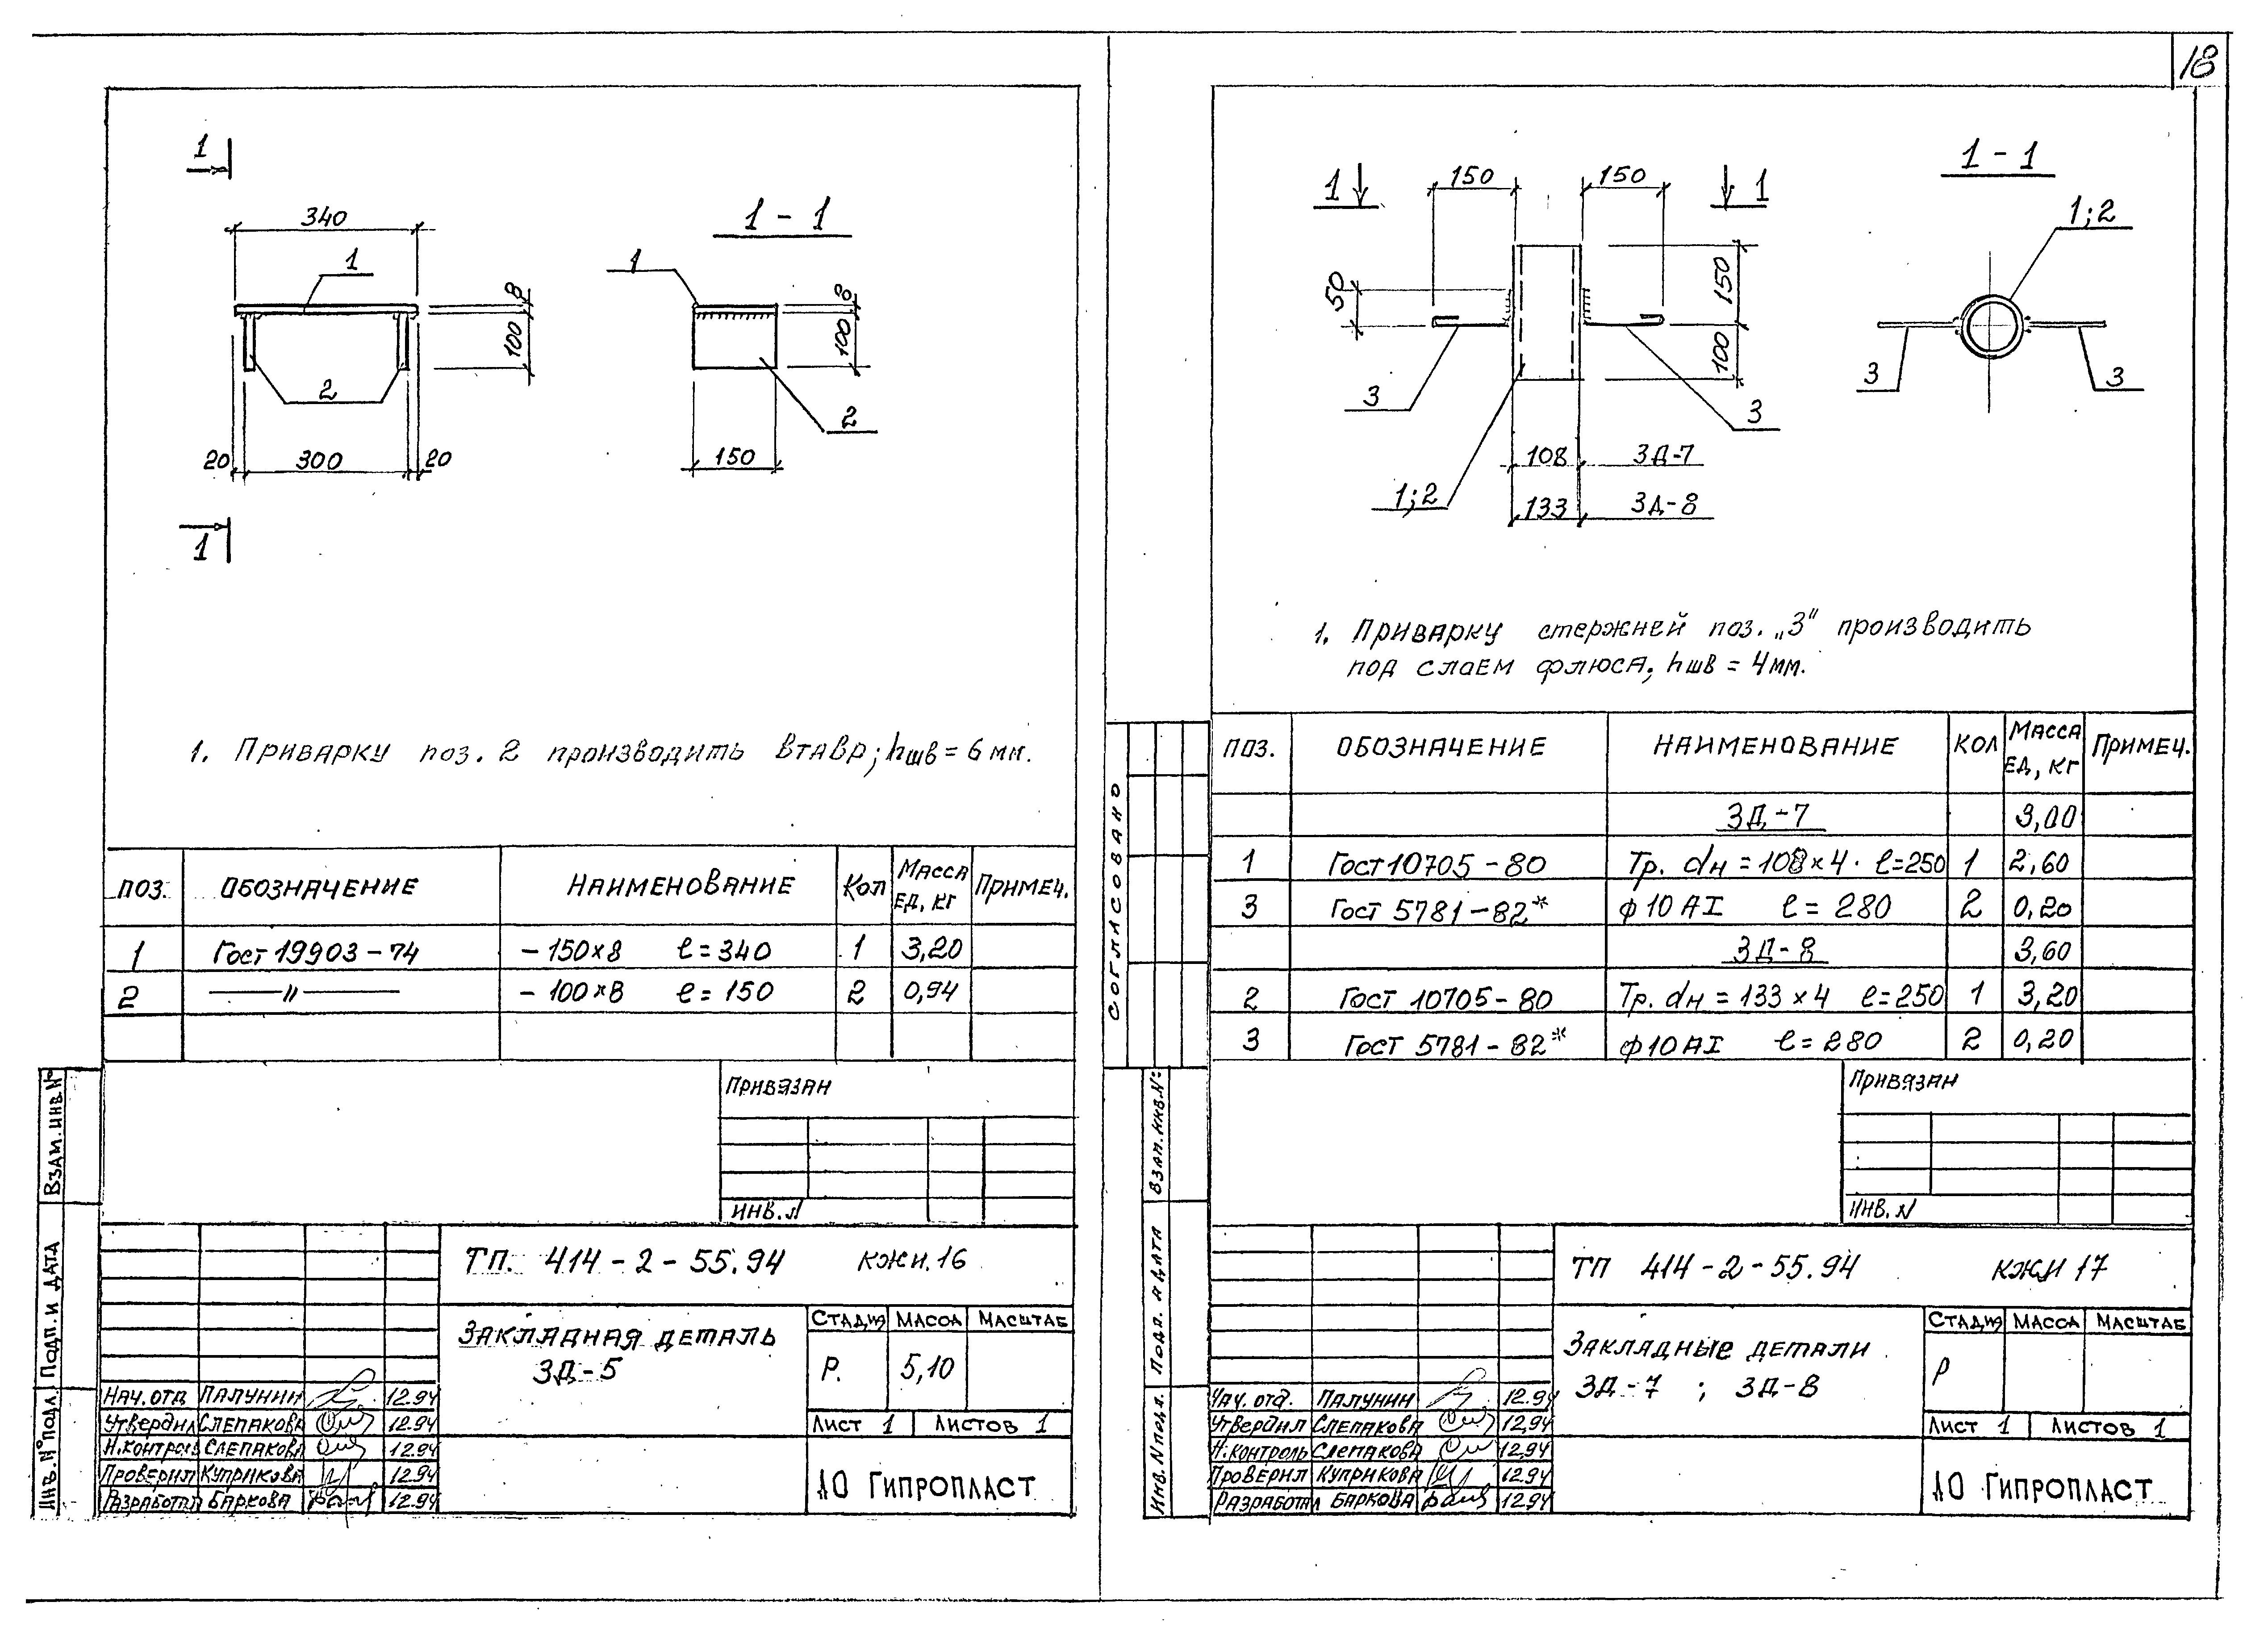 18
1
340
1
8
100
2
20
300
20
1
1 - 1
1
8
100
2
150
1. Приварку поз. 2 производить втавр; hшв = 6 мм.
ПОЗ. ОБОЗНАЧЕНИЕ НАИМЕНОВАНИЕ Кол Масса ед, кг Примеч.
1 Гост 19903-74 - 150×8 ℓ=340 1 3,20
2 —〃— - 100×8 ℓ=150 2 0,94
Привязан
ИНВ. N
ТП. 414-2-55.94 КЖИ.16
Закладная деталь
ЗД-5
Стадия Масса Масштаб
Р. 5,10
Лист 1 Листов 1
АО Гипропласт
Нач. отд Палунин 12.94
Утвердил Слепакова 12.94
Н.контроль Слепакова 12.94
Проверил Куприкова 12.94
Разработал Баркова 12.94
Взам. инв. №
Подп. и дата
Инв. № подл.
1 150 150 1
50
150
100
3
3
1;2
108 ЗД-7
133 ЗД-8
1 - 1
1;2
3
3
1. Приварку стержней поз. „3" производить
под слоем флюса; hшв = 4мм.
ПОЗ. ОБОЗНАЧЕНИЕ НАИМЕНОВАНИЕ Кол Масса ед, кг Примеч.
ЗД-7 3,00
1 Гост 10705-80 Тр. dн = 108×4. ℓ=250 1 2,60
3 Гост 5781-82* ф10АI ℓ=280 2 0,20
ЗД-8 3,60
2 Гост 10705-80 Тр. dн = 133×4 ℓ=250 1 3,20
3 Гост 5781-82* ф10АI ℓ=280 2 0,20
Согласовано
Привязан
ИНВ. N
ТП 414-2-55.94 КЖИ 17
Закладные детали
ЗД-7 ; ЗД-8
Стадия Масса Масштаб
Р
Лист 1 Листов 1
АО Гипропласт
Нач. отд. Палунин 12.94
Утвердил Слепакова 12,94
Н.контроль Слепакова 12,94
Проверил Куприкова 12,94
Разработал Баркова 12.94
Взам. инв. N:
Подп. и дата
Инв. N подл.